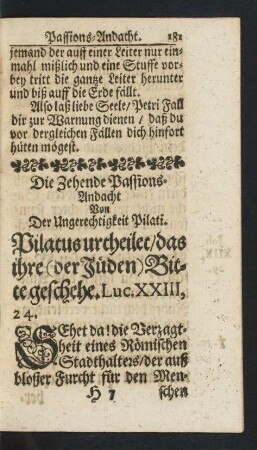 Passions-Andacht. 181
jemand der auff einer Leiter nur ein-
mahl mißlich und eine Stuffe vor-
bey tritt die gantze Leiter herunter
und biß auff die Erde fällt.
Also laß liebe Seele/ Petri Fall
dir zur Warnung dienen / daß du
vor dergleichen Fällen dich hinfort
hüten mögest.
Die Zehende Passions-
Andacht
Von
Der Ungerechtigkeit Pilati.
Pilatus urcheilet/das
ihre (der Jüden) Bit-
te geschehe. Luc. XXIII,
24.
SEhet da! die Verzagt-
heit eines Römischen
Stadthalters/der auß
bloßer Furcht für den Men-
H 7 schen